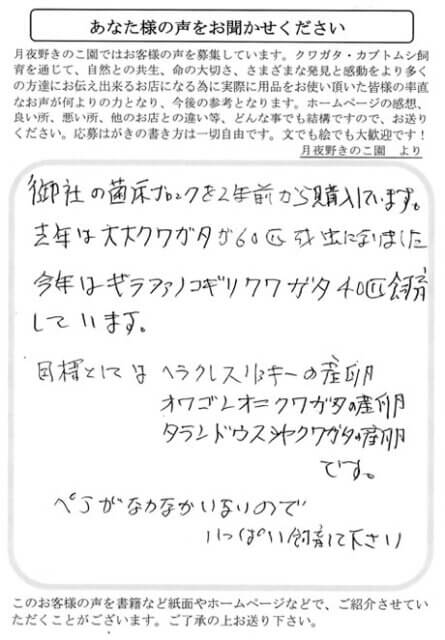 あなた様の声をお聞かせください
月夜野きのこ園ではお客様の声を募集しています。クワガタ・カブトムシ飼
育を通じて、自然との共生、命の大切さ、さまざまな発見と感動をより多く
の方達にお伝え出来るお店になる為に実際に用品をお使い頂いた皆様の率直
なお声が何よりの力となり、今後の参考となります。ホームページの感想、
良い所、悪い所、他のお店との違い等、どんな事でも結構ですので、お送り
ください。応募はがきの書き方は一切自由です。文でも絵でも大歓迎です！
月夜野きのこ園　より
御社の菌床ブロックを2年前から購入しています。
去年は大木クワガタが60匹
今年はギラファノコギリクワガタ40匹飼育
しています。
目標としては ヘラクレスリッキーの産卵
オウゴンオニクワガタの産卵
タランドウスツヤクワガタの産卵
です。
がなかなかいないので
いっぱい飼育して下さい
このお客様の声を書籍など紙面やホームページなどで、ご紹介させてい
ただくことがございます。ご了承の上お送り下さい。